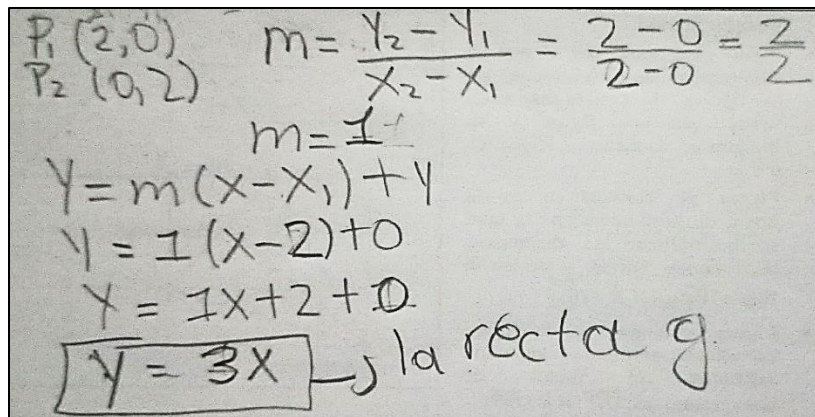 P₁ (2,0) m = Y₂ - Y₁ / X₂ - X₁ = 2 - 0 / 2 - 0 = 2 / 2
P₂ (0,2)
m = 1
Y = m (X - X₁) + Y
Y = 1 (X - 2) + 0
Y = 1X + 2 + 0
Y = 3X → la recta g